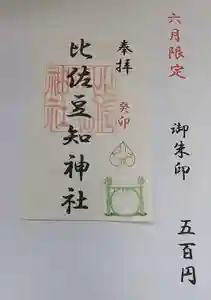 六月限定
御朱印
五百円
奉拝
癸卯
比佐豆知神社